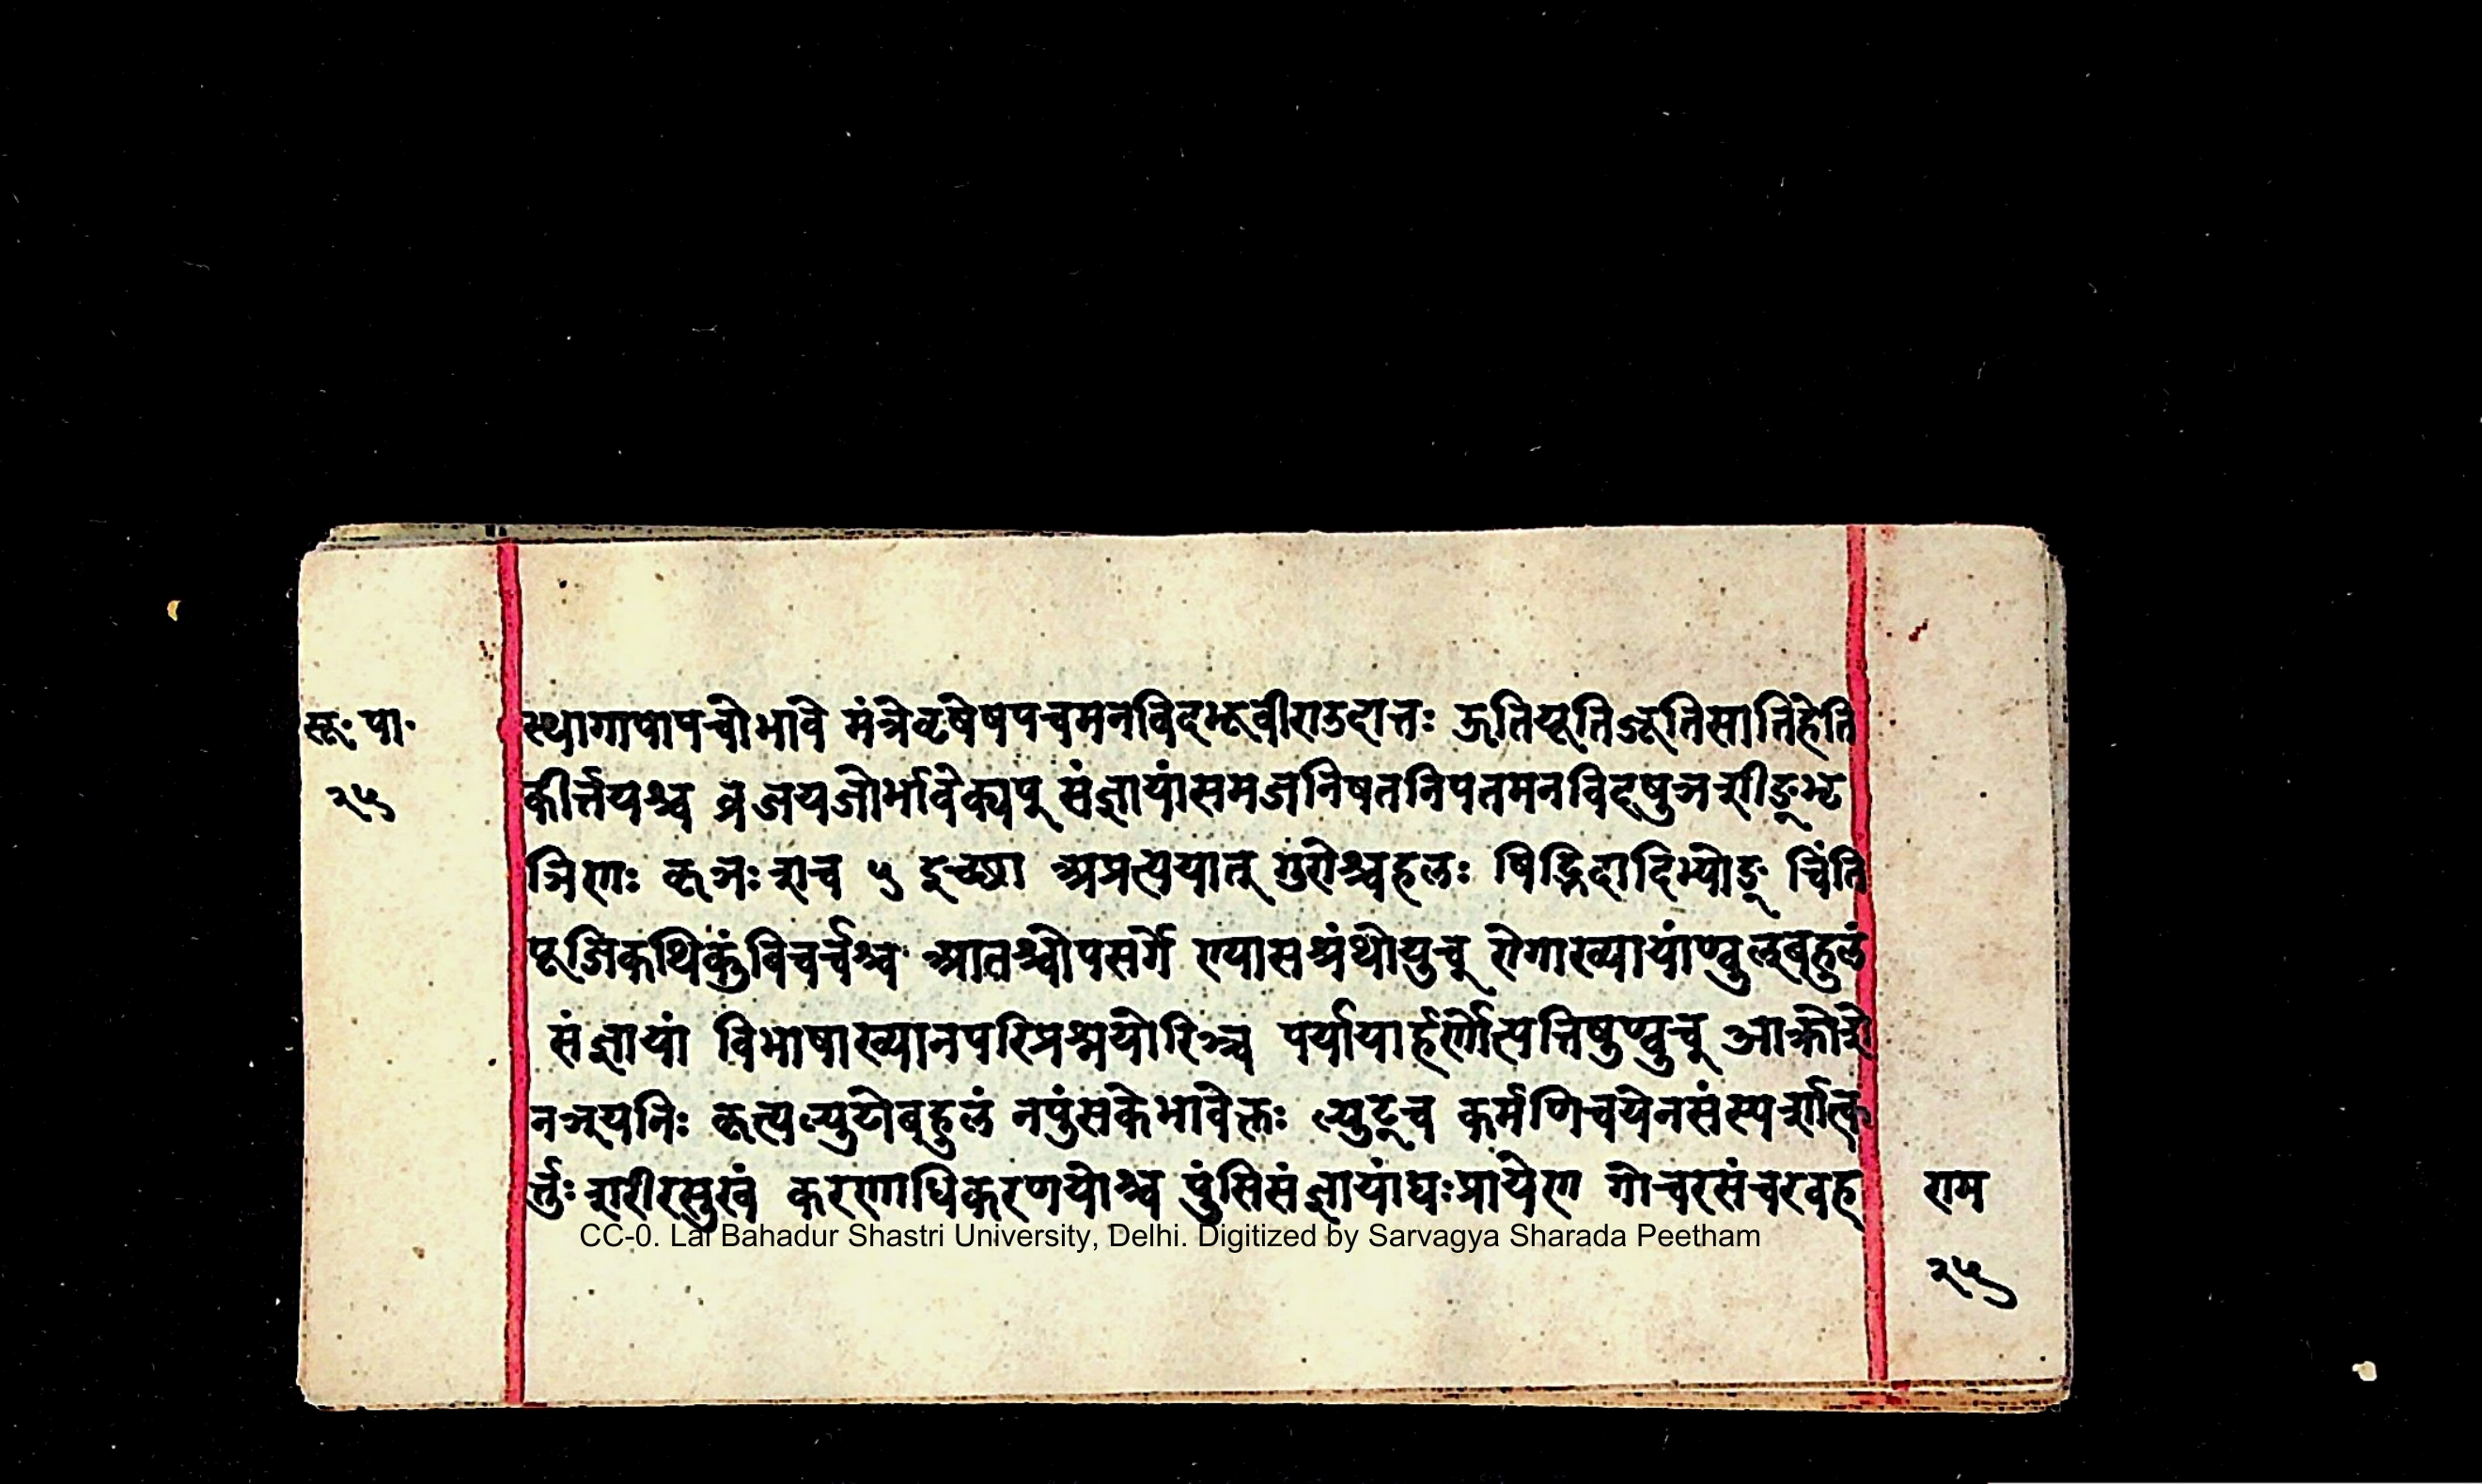 सू. पा.
२५
स्थागापापचोभावे मंत्रेवृषेषपचमनविदभूवीराउदात्तः ऊतियूतिजूतिसातिहेति
कीर्त्तयश्च व्रजयजोर्भावेक्यप् संज्ञायांसमजनिषतनिपतमनविदषुञशीङ्भृ
ञिणः कृञःशच ५ इच्छा अप्रत्ययात् गुरोश्चहलः षिद्भिदादिभ्योङ् चिंति
पूजिकथिकुंबिचर्चश्च आतश्चोपसर्गे ण्यासश्रंथोयुच् रोगाख्यायांण्वुल्बहुलं
संज्ञायां विभाषाख्यानपरिप्रश्नयोरिञ्च पर्यायार्हर्णोत्पत्तिषुण्वुच् आक्रोशे
नञ्यनिः कृत्यल्युटोबहुलं नपुंसकेभावेक्तः ल्युट्च कर्मणिचयेनसंस्पर्शात्क
र्त्तुः शरीरसुखं करणाधिकरणयोश्च पुंसिसंज्ञायांघःप्रायेण गोचरसंचरवह
राम
२५
CC-0. Lal Bahadur Shastri University, Delhi. Digitized by Sarvagya Sharada Peetham